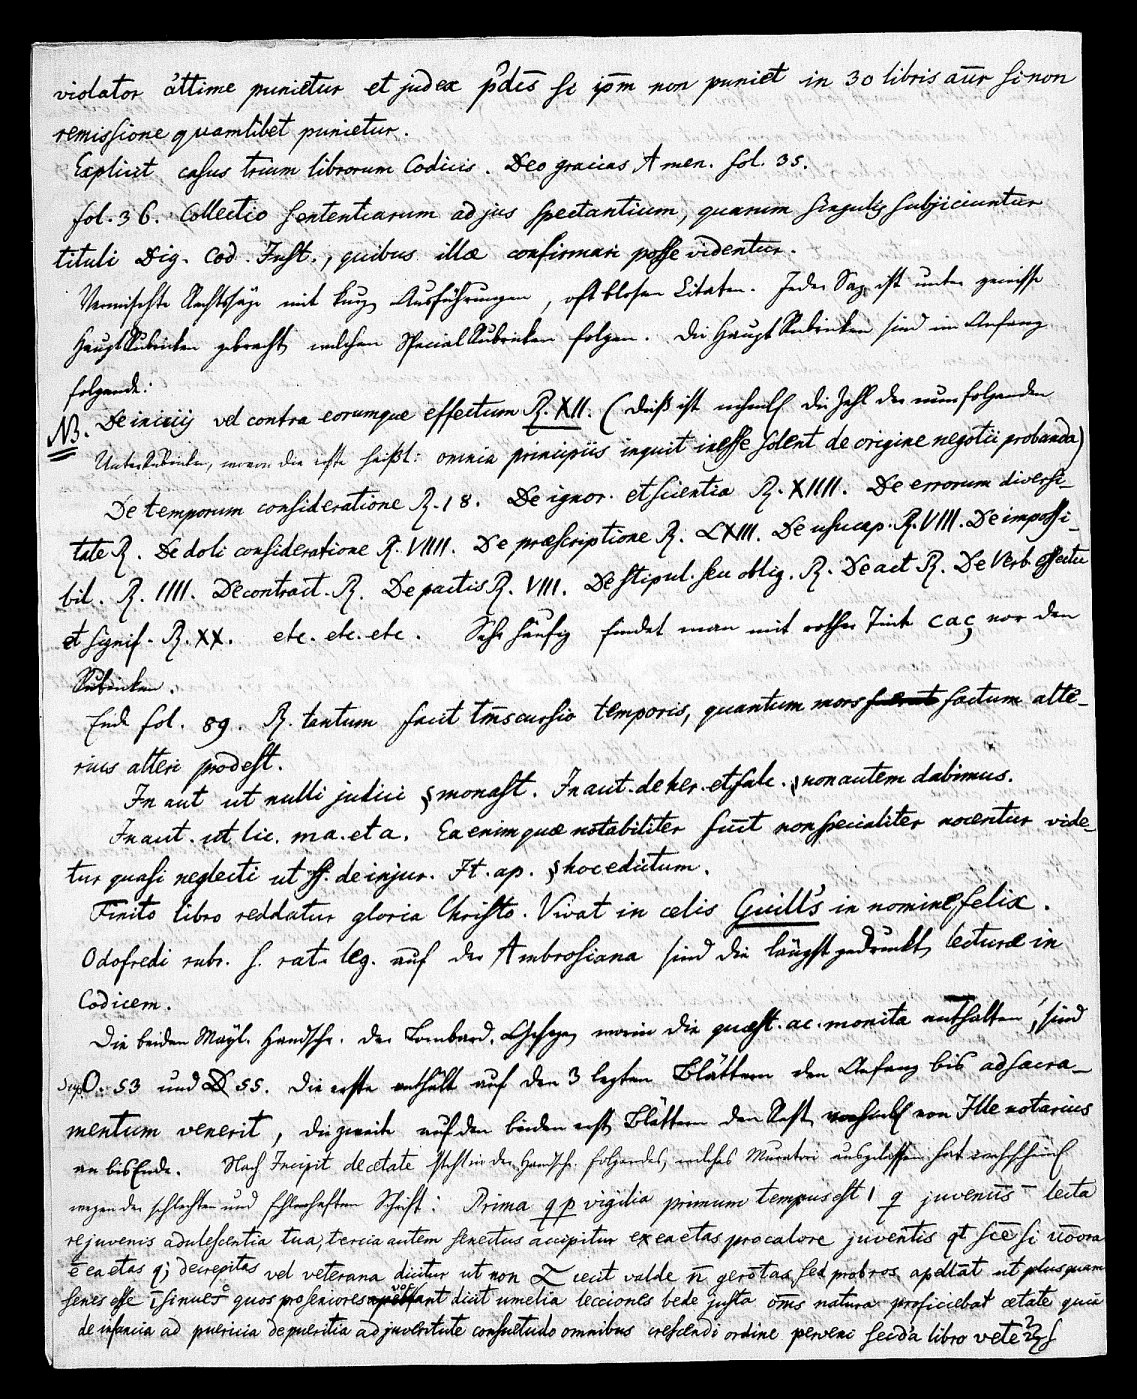 violator áttime punietur et judex p̄dcs̄ se ip̄m non puniet in 30 libris aūr si non
remissione quamlibet punietur.
Explicit casus trium librorum Codicis. Deo gracias Amen. fol. 35.
fol. 36. Collectio sententiarum ad jus spectantium, quarum singulis subjiciuntur
tituli Dig. Cod. Inst., quibus illæ confirmari posse videntur.
Vermischte Rechtssäze mit kurz. Ausführungen, oft blosen Citaten. Jeder Saz ist unter gewisse
HauptRubriken gebracht welchen SpecialRubriken folgen. Die HauptRubriken sind im Anfang
folgende:
NB. De iniciis vel contra eorumque effectum R. XII. (Dieß ist nehmlich die Zahl der nun folgenden
UnterRubriken, wovon die erste heißt: omnia principiis inquit inesse solent de origine negotii probanda)
De temporum consideratione R. 18. De ignor. et scientia R. XIIII. De errorum diversi-
tate R. De doli consideratione R. VIIII. De præscriptione R. LXIII. De usucap. R. VIII. De impossi-
bil. R. IIII. De contract. R. De pactis R. VIII. De stipul. seu oblig. R. De act R. De Verb. effectu
et signif. R. XX. etc. etc. etc. Sehr häufig findet man mit rother Tinte caç vor den
Rubriken.
Ende fol. 89. R. tantum facit tm̄scursio temporis, quantum mors factum alte-
rius alteri prodest.
In aut ut nulli judici § monast. In aut. de her. et falc. § non autem dabimus.
In aut. ut lic. ma. et a. Ea enim quæ notabiliter sūt non specialiter nocentur vide-
tur quasi neglecti ut ff. de injur. It. ap. § hoc edictum.
Finito libro reddatur gloria Christo. Vivat in cælis Guill's in nomine felix.
Odofredi rubr. s. rat. leg. auf der Ambrosiana sind die längst gedruckt lecturæ in
Codicem.
Die beiden Mayl. Handschr. der Lombard. Gesezen worin die quæst. ac. monita enthalten, sind
Sup. O. 53 und D 55. Die erste enthält auf den 3 lezten Blättern den Anfang bis ad sacra-
mentum venerit, die zweite auf den beiden erst Blättern den Rest von Ille notarius
an bis Ende. Nach Incipit de etate steht in der Handschr. folgendes, welches Muratori ausgelassen hat wahrscheinlich
wegen der schlechten und fehlerhaften Schrift: Prima vigilia primum tempus est juventis lecta
rejuvenis adulescentia tua, tercia autem senectus accipitur ex ea etas pro calore juventis
ē ea etas decrepitas vel veterana dicitur ut non cecit valde n̄ gerotas, sed probros apellāt ut plusquam
senes esse quos pro seniores vocant dicit umelia lecciones bede justa om̄s natura proficiebat ætate
de infancia ad puericia de pueritia ad juventute consuetudo omnibus crescendi ordine perveni libro